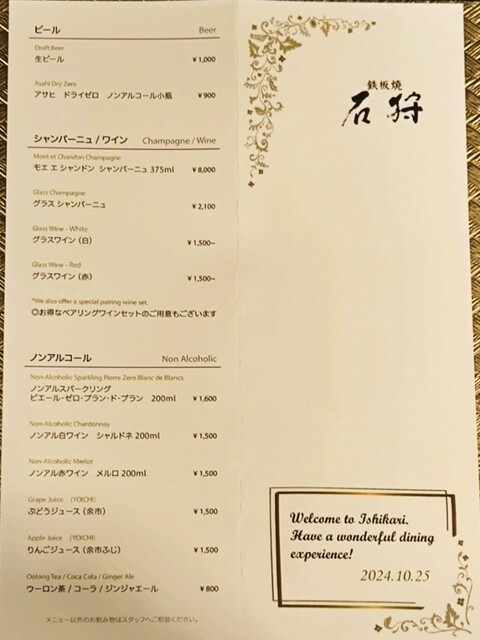 ビール Beer
Draft Beer
生ビール ￥1,000
Asahi Dry Zero
アサヒ ドライゼロ ノンアルコール小瓶 ￥900
シャンパーニュ / ワイン Champagne / Wine
Moet et Chandon Champagne
モエ エ シャンドン シャンパーニュ 375ml ￥8,000
Glass Champagne
グラス シャンパーニュ ￥2,100
Glass Wine - White
グラスワイン (白) ￥1,500~
Glass Wine - Red
グラスワイン (赤) ￥1,500~
*We also offer a special pairing wine set.
◎お得なペアリングワインセットのご用意もございます
ノンアルコール Non Alcoholic
Non-Alcoholic Sparkling Pierre Zero Blanc de Blancs
ノンアルスパークリング
ピエール・ゼロ・ブラン・ド・ブラン 200ml ￥1,600
Non-Alcoholic Chardonnay
ノンアル白ワイン シャルドネ 200ml ￥1,500
Non-Alcoholic Merlot
ノンアル赤ワイン メルロ 200ml ￥1,500
Grape Juice (YOICHI)
ぶどうジュース (余市) ￥1,500
Apple Juice (YOICHI)
りんごジュース (余市ふじ) ￥1,500
Oolong Tea / Coca Cola / Ginger Ale
ウーロン茶 / コーラ / ジンジャエール ￥800
メニュー以外のお飲物はスタッフへご相談ください。
鉄板焼
石狩
Welcome to Ishikari.
Have a wonderful dining
experience!
2024.10.25